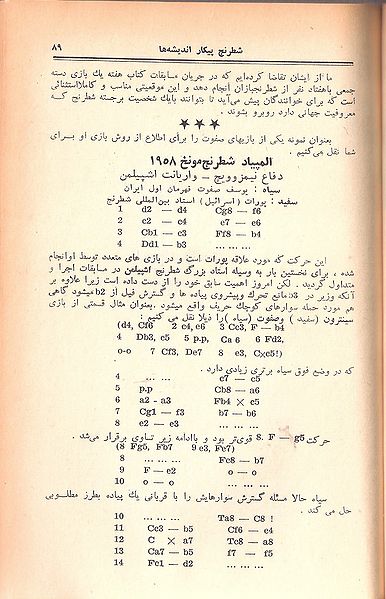 شطرنج پیکار اندیشه‌ها ۸۹
ما از ایشان تقاضا کرده‌ایم که در جریان مسابقات کتاب هفته یك بازی دسته
جمعی باهفتاد نفر از شطرنجبازان انجام دهد و این موقعیتی مناسب و کاملااستثنائی
است که برای خوانندگان پیش می‌آید تا بتوانند بایك شخصیت برجسته شطرنج کـه
معروفیت جهانی دارد روبرو بشوند .
★ ★ ★
بعنوان نمونه یکی از بازیهای صفوت را برای اطلاع از روش بازی او بـرای
شما نقل می‌کنیم .
المپیاد شطرنج‌مونخ ۱۹۵۸
دفاع نیمزوویچ ـ واریانت اشپیلمن
سیاه : یوسف صفوت قهرمان اول ایران
سفید : پورات (اسرائیل) استاد بین‌المللی شطرنج
1 d2 — d4 Cg8 — f6
2 c2 — c4 e7 — e6
3 Cb1 — c3 Ff8 — b4
4 Dd1 — b3 ... ... ...
این حرکت که مورد علاقه پورات است و در بازی های متعدد توسط اوانجام
شده ، برای نخستین بار به وسیله استاد بزرگ شطرنج اشپیلمن در مسابقات اجرا و
متداول گردید . لکن امروز اهمیت سابق خود را از دست داده است زیرا علاوه بر
آنکه وزیر در b3 مانع تحرك وپیشروی پیاده ها و گسترش فیل از b2 میشود گاهی
هم مورد حمله سوارهای کوچك حریف واقع میشود . بعنوان مثال قسمتی از بازی
سینترون (سفید) وصفوت (سیاه) را ذیلا نقل می کنیم :
(d4, Cf6 2 c4, e6 3 Cc3, F — b4
4 Db3, c5 5 p.p, Ca 6 6 Fd2,
o-o 7 Cf3, De7 8 e3, C×c5!)
که در وضع فوق سیاه برتری زیادی دارد .
4 ... ... c7 — c5
5 p.p Cb8 — a6
6 a2 - a3 Fb4 × c5
7 Cg1 — f3 b7 — b6
8 e2 — e3 ... ...
حرکت 8. F — g5 قوی‌تر بود و باادامه زیر تساوی برقرار می‌شد .
(8 Fg5, Fb7 9 e3, Fe7)
8 ... ... Fc8 — b7
9 F — e2 o — o
10 o — o ... ... ...
سیاه حالا مسئله گسترش سوارهایش را با قربانی یك پیاده بطرز مطلـوبی
حل می کند .
10 ... ... ... Ta8 — C8 !
11 Cc3 — b5 Cf6 — e4
12 C × a7 Tc8 — a8
13 Ca7 — b5 f7 — f5
14 Fc1 — d2 ... ... ...